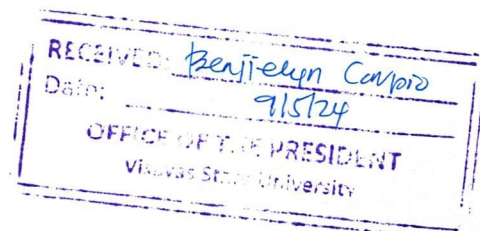 RECEIVED: Benjielyn Carpio
Date: 9/5/24
OFFICE OF THE PRESIDENT
Visayas State University